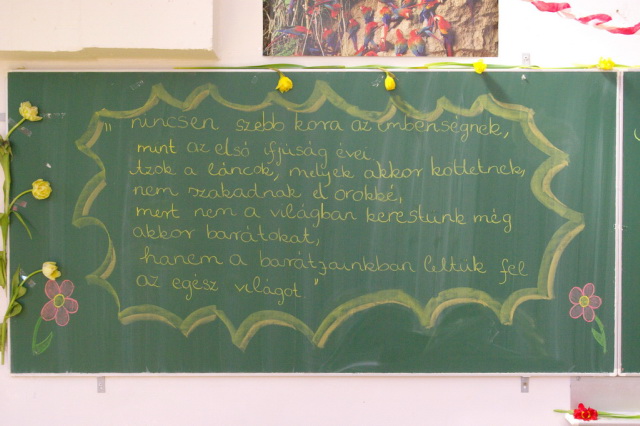 „ nincsen szebb kora az emberiségnek,
mint az első ifjúság évei
Azok a láncok, melyek akkor köttetnek,
nem szakadnak el örökké,
mert nem a világban kerestünk még
akkor barátokat,
hanem a barátjainkban leltük fel
az egész világot "